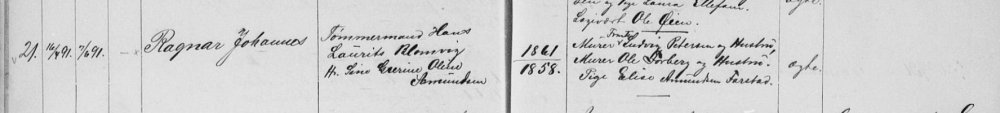 Logivært Ole Øien.
21. 16/4 91. 7/6 91. — Ragnar Johannes
Tømmermand Hans
Laurits Blomvig
H. Sine Grerine Oline
Amundsen
1861
1858.
Murer Ludvig Petersen og Hustru,
Murer Ole Forberg og Hustru.
Pige Elise Amundsen Farstad.
ægte.